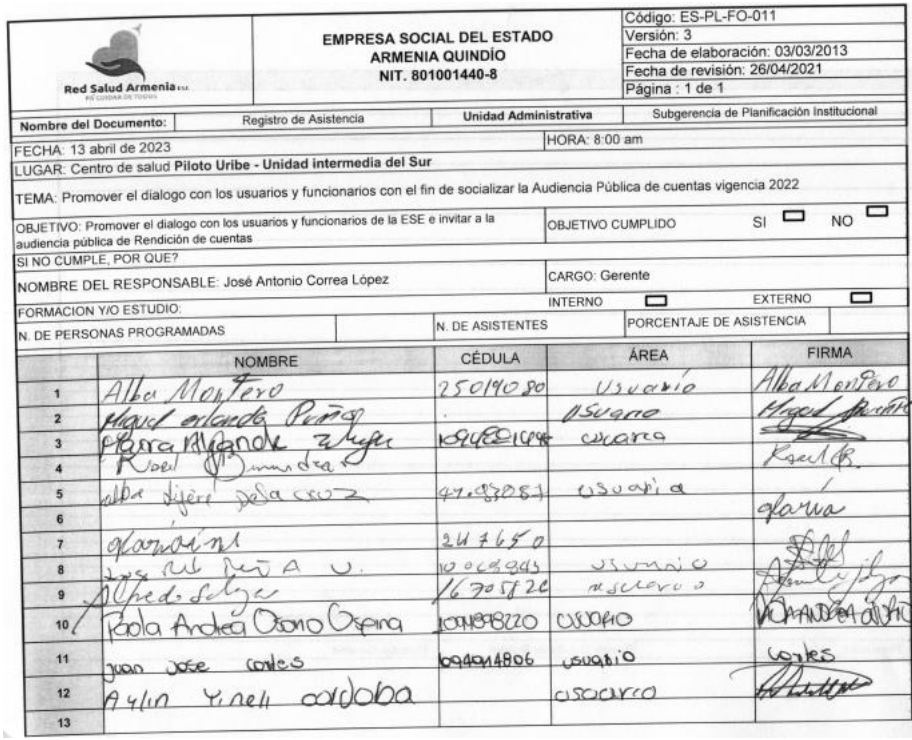 Red Salud Armenia E.S.E.
EMPRESA SOCIAL DEL ESTADO
ARMENIA QUINDÍO
NIT. 801001440-8
Código: ES-PL-FO-011
Versión: 3
Fecha de elaboración: 03/03/2013
Fecha de revisión: 26/04/2021
Página : 1 de 1
Nombre del Documento: Registro de Asistencia Unidad Administrativa Subgerencia de Planificación Institucional
FECHA: 13 abril de 2023 HORA: 8:00 am
LUGAR: Centro de salud Piloto Uribe - Unidad intermedia del Sur
TEMA: Promover el dialogo con los usuarios y funcionarios con el fin de socializar la Audiencia Pública de cuentas vigencia 2022
OBJETIVO: Promover el dialogo con los usuarios y funcionarios de la ESE e invitar a la
audiencia pública de Rendición de cuentas
OBJETIVO CUMPLIDO SI NO
SI NO CUMPLE, POR QUE?
NOMBRE DEL RESPONSABLE: José Antonio Correa López CARGO: Gerente
FORMACION Y/O ESTUDIO: INTERNO EXTERNO
N. DE PERSONAS PROGRAMADAS N. DE ASISTENTES PORCENTAJE DE ASISTENCIA
NOMBRE CÉDULA ÁREA FIRMA
1 Alba Montero 25019080 usuario Alba Montero
2 Miguel Usuario Miguel
3
4
5 alba usuaria
6 gloria
7 247650
8 usuario
9 Alfredo 16705826
10 Paola Andrea Osorio Ospina usuario
11 juan jose cortes 1094914806 usuario cortes
12 Aylin Yineli cordoba
13